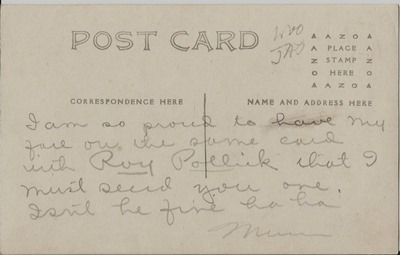 POST CARD
AZO
PLACE
STAMP
HERE
AZO
CORRESPONDENCE HERE
NAME AND ADDRESS HERE
I am so proud to have my
face on the same card
with Roy Pollick that I
must send you one.
Isn't he fine ha ha